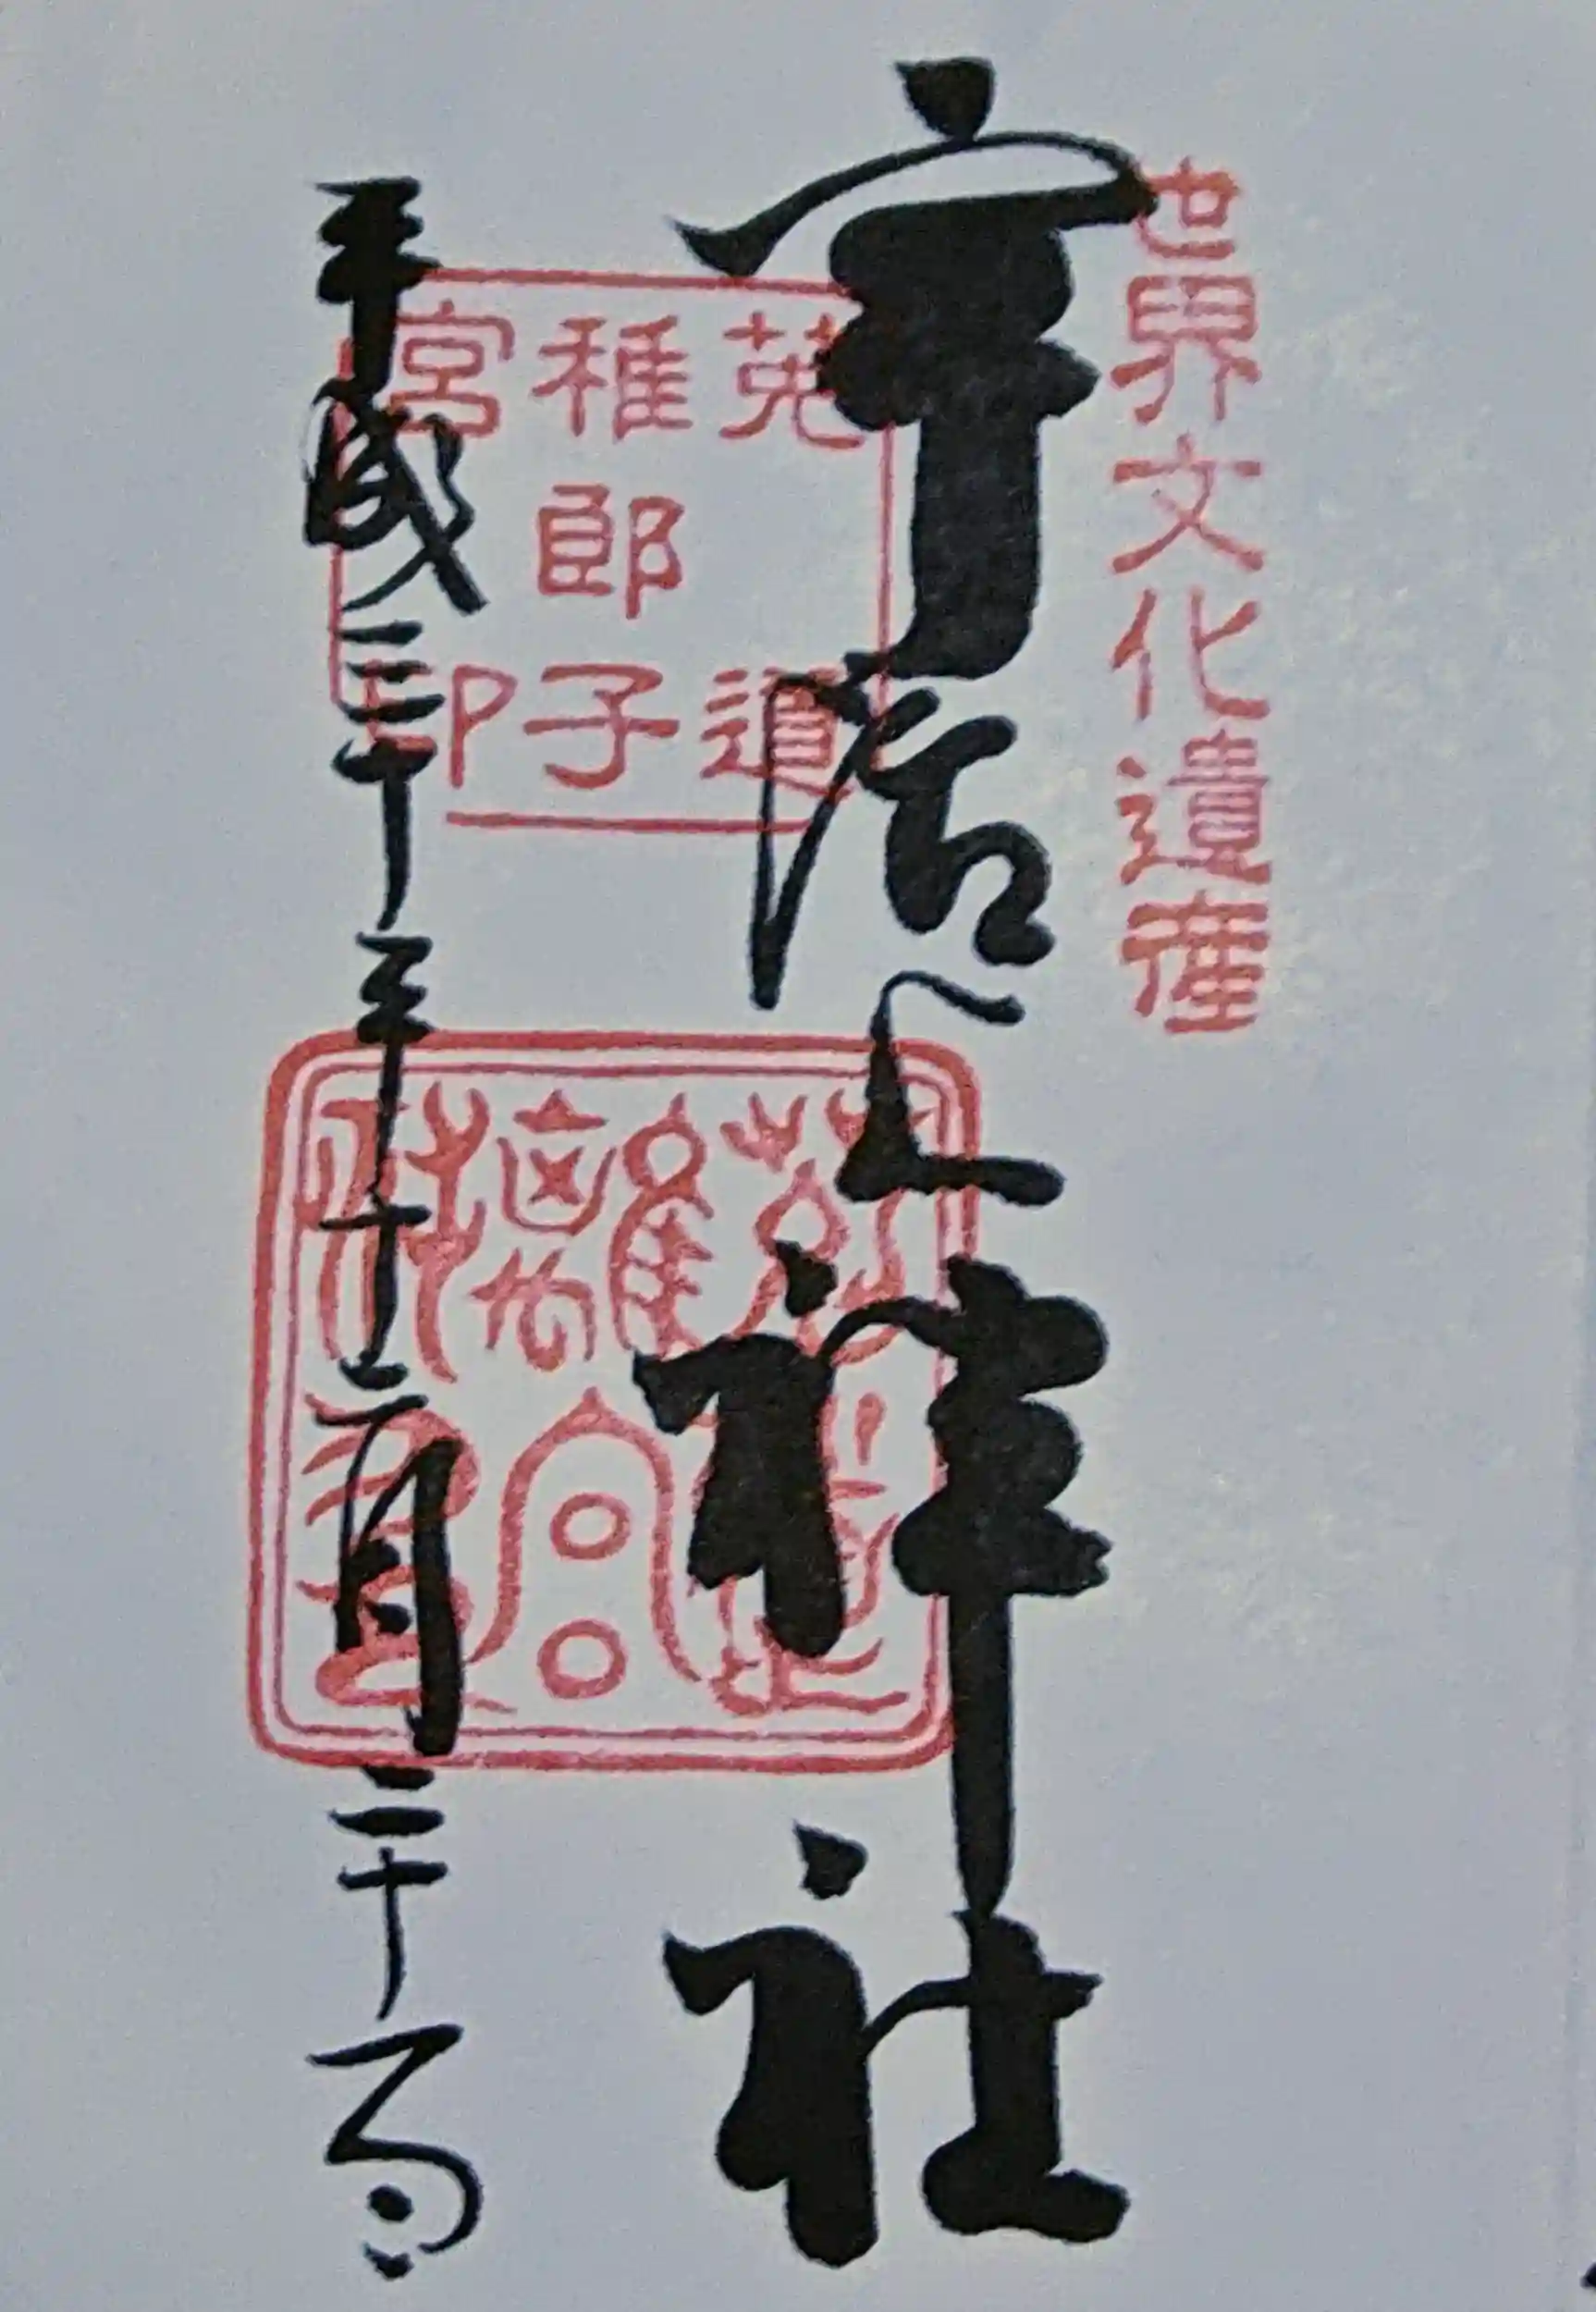 世界文化遺産
宇治上神社
菟道
稚郎子
宮印
平成三十年十二月二十日